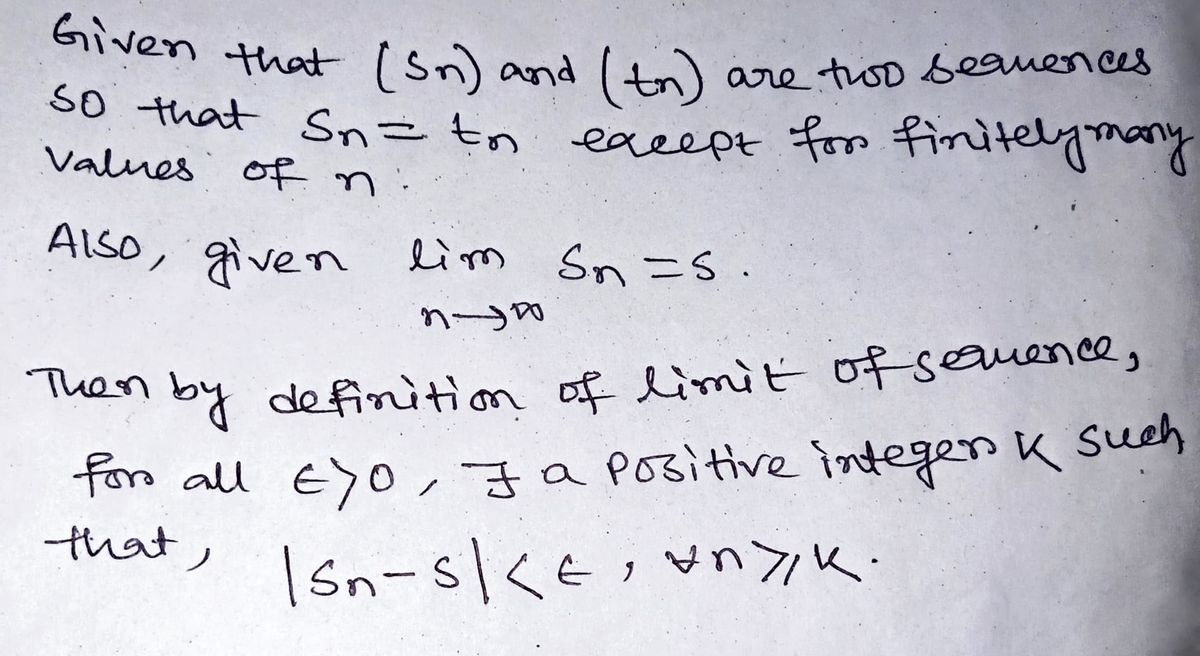 Given that (sn) and (tn) are two sequences
so that sn = tn except for finitely many
values of n.
Also, given lim sn = s.
n→∞
Then by definition of limit of sequence,
for all ϵ>0, ∃ a positive integer K such
that,
|sn-s|<ϵ, ∀n⩾K.